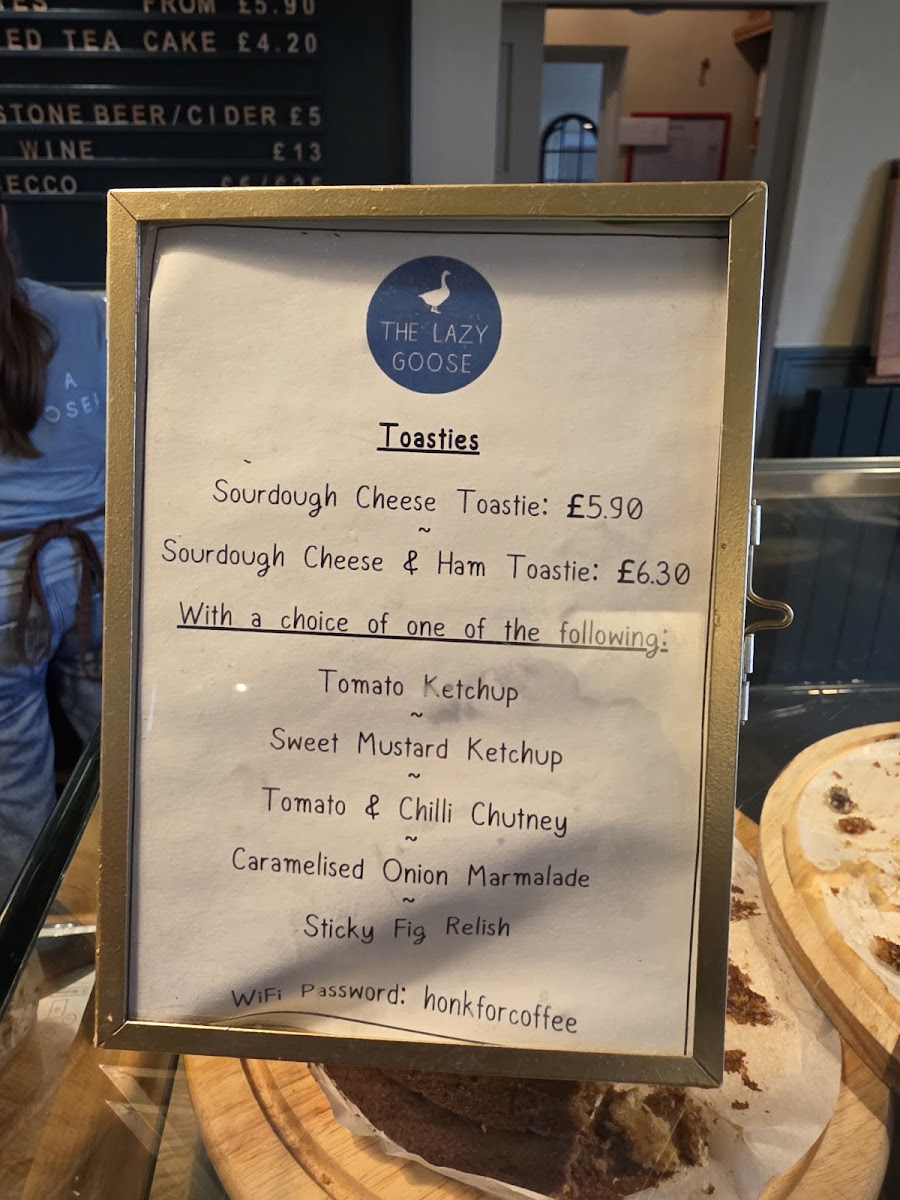 FROM £5.90
ED TEA CAKE £4.20
STONE BEER/CIDER £5
WINE £13
ECCO
THE LAZY
GOOSE
Toasties
Sourdough Cheese Toastie: £5.90
~
Sourdough Cheese & Ham Toastie: £6.30
With a choice of one of the following:
Tomato Ketchup
~
Sweet Mustard Ketchup
~
Tomato & Chilli Chutney
~
Caramelised Onion Marmalade
~
Sticky Fig Relish
WiFi Password: honkforcoffee